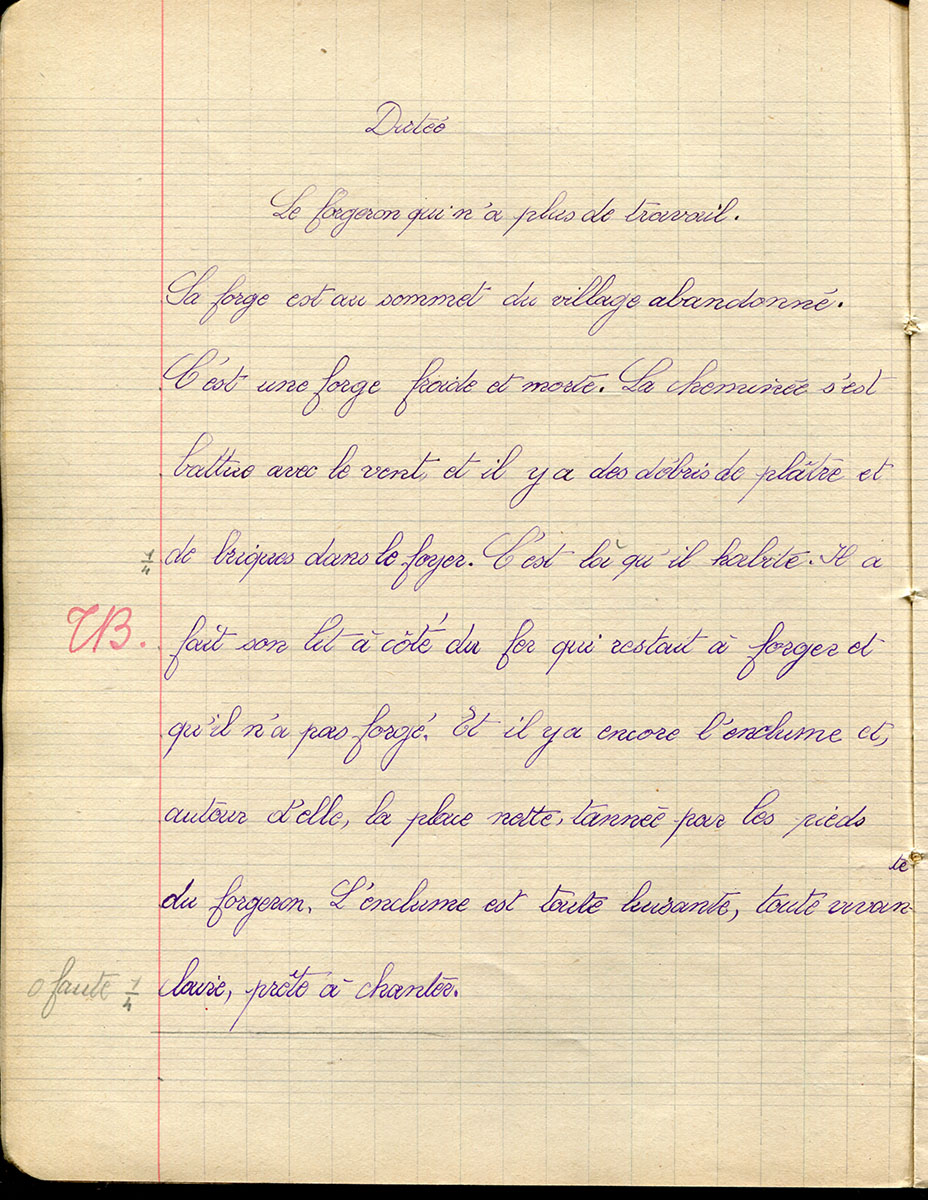 Dictée
Le forgeron qui n'a plus de travail.
Sa forge est au sommet du village abandonné.
C'est une forge froide et morte. La cheminée s'est
battue avec le vent, et il y a des débris de plâtre et
1/4 de briques dans le foyer. C'est là qu'il habite. Il a
TB. fait son lit à côté du fer qui restait à forger et
qu'il n'a pas forgé. Et il y a encore l'enclume et,
autour d'elle, la place nette, tannée par les pieds
te
du forgeron. L'enclume est toute luisante, toute vivan-
0 faute 1/4 claire, prête à chanter.